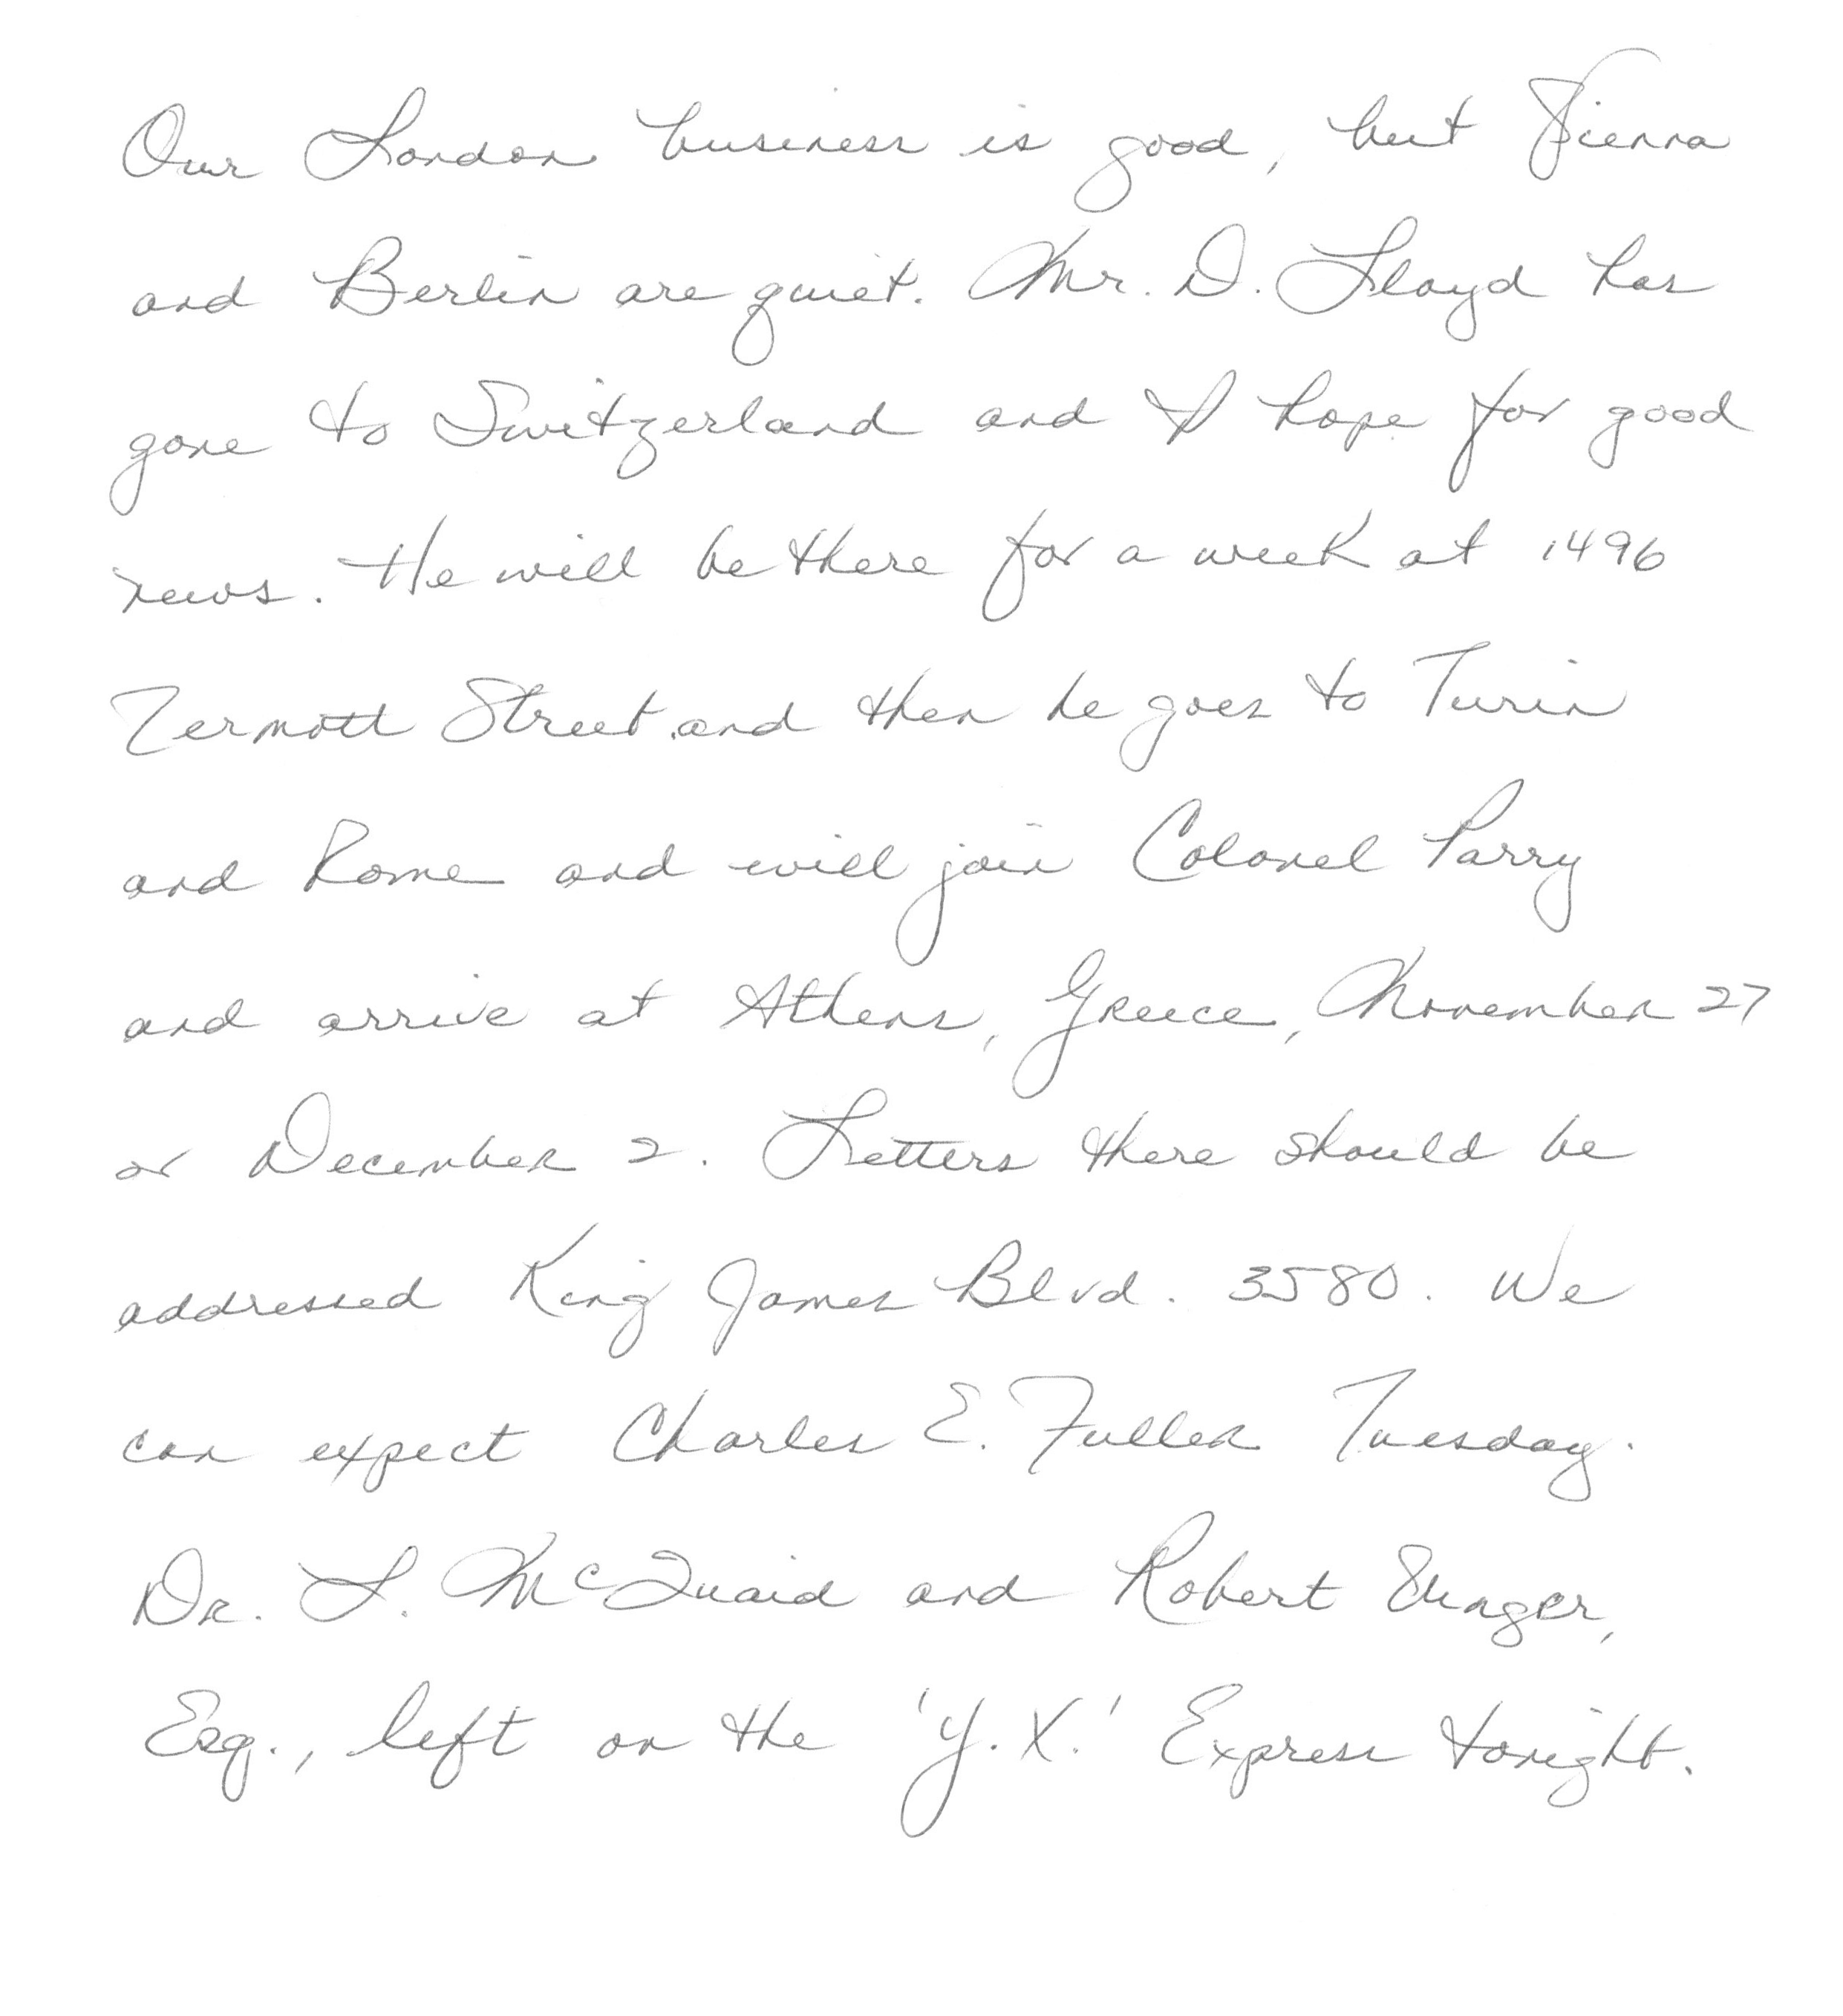 Our London business is good, but Vienna
and Berlin are quiet. Mr. D. Lloyd has
gone to Switzerland and I hope for good
news. He will be there for a week at 1496
Zermott Street and then he goes to Turin
and Rome and will join Colonel Parry
and arrive at Athens, Greece, November 27
or December 2. Letters there should be
addressed King James Blvd. 3580. We
can expect Charles E. Fuller Tuesday.
Dr. L. McQuaid and Robert Unger,
Esq., left on the 'Y.X.' Express tonight.